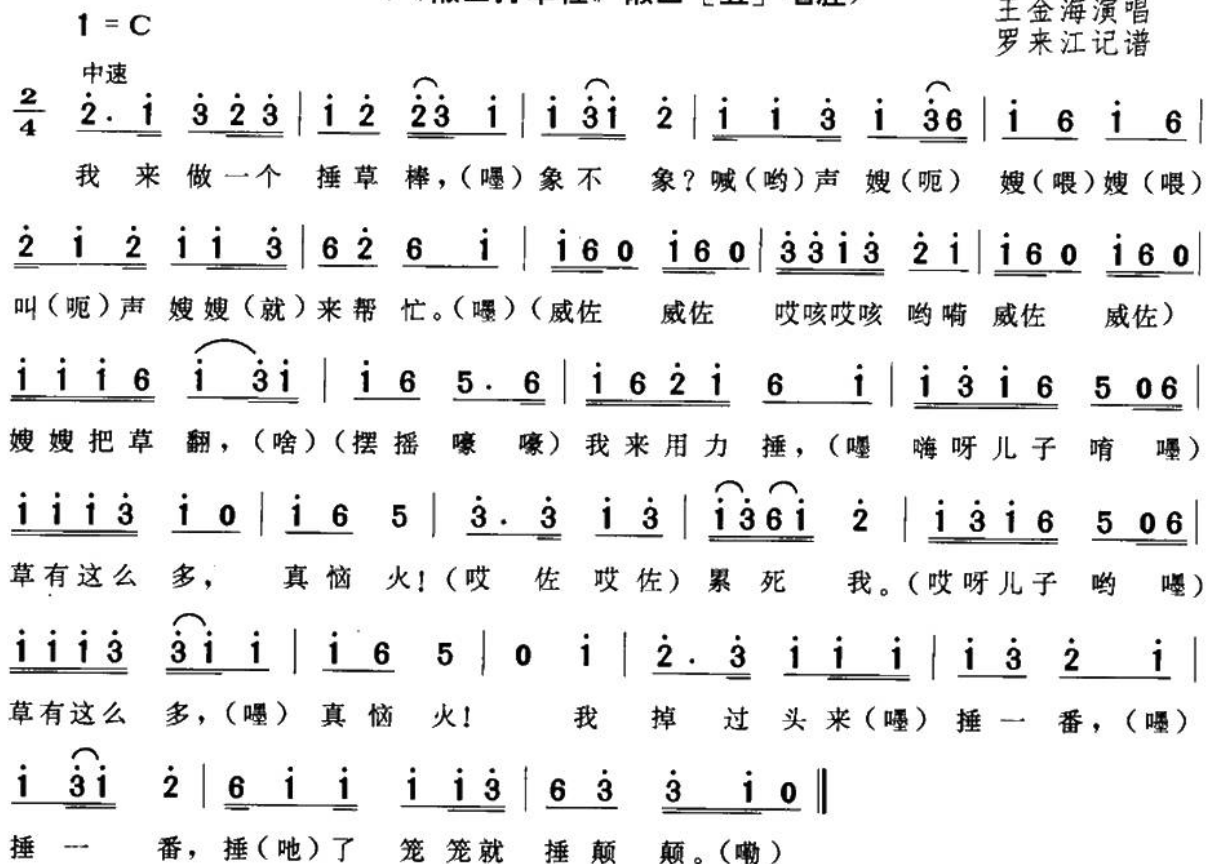 1 = C
王金海演唱
罗来江记谱
中速
2/4 2̇. 1̇ 3̇ 2̇ 3̇ | 1̇ 2̇ 2̇3̇ 1̇ | 1̇ 3̇1̇ 2̇ | 1̇ 1̇ 3̇ 1̇ 3̇6 | 1̇ 6 1̇ 6 |
我 来 做 一 个 捶 草 棒，（嚜）象 不 象？喊（哟）声 嫂（呃） 嫂（喂）嫂（喂）
2̇ 1̇ 2̇ 1̇ 1̇ 3̇ | 6 2̇ 6 1̇ | 1̇ 6 0 1̇ 6 0 | 3̇ 3̇ 1̇ 3̇ 2̇ 1̇ | 1̇ 6 0 1̇ 6 0 |
叫（呃）声 嫂嫂（就）来 帮 忙。（嚜）（威佐 威佐 哎咳哎咳 哟嗬 威佐 威佐）
1̇ 1̇ 1̇ 6 1̇ 3̇1̇ | 1̇ 6 5. 6 | 1̇ 6 2̇ 1̇ 6 1̇ | 1̇ 3̇ 1̇ 6 5 06 |
嫂嫂把草 翻，（啥）（摆摇 嚎 嚎）我来用力 捶，（嚜 嗨呀儿子 唷 嚜）
1̇ 1̇ 1̇ 3̇ 1̇ 0 | 1̇ 6 5 | 3̇. 3̇ 1̇ 3̇ | 1̇3̇61̇ 2̇ | 1̇ 3̇ 1̇ 6 5 06 |
草有这么 多， 真 恼 火！（哎 佐 哎佐）累 死 我。（哎呀儿子 哟 嚜）
1̇ 1̇ 1̇ 3̇ 3̇1̇ 1̇ | 1̇ 6 5 | 0 1̇ | 2̇. 3̇ 1̇ 1̇ 1̇ | 1̇ 3̇ 2̇ 1̇ |
草有这么 多，（嚜）真 恼 火！ 我 掉 过 头 来（嚜）捶 一 番，（嚜）
1̇ 3̇1̇ 2̇ | 6 1̇ 1̇ 1̇ 1̇3̇ | 6 3̇ 3̇ 1̇ 0 ‖
捶 一 番，捶（吔）了 笼 笼就 捶 颠 颠。（嘞）